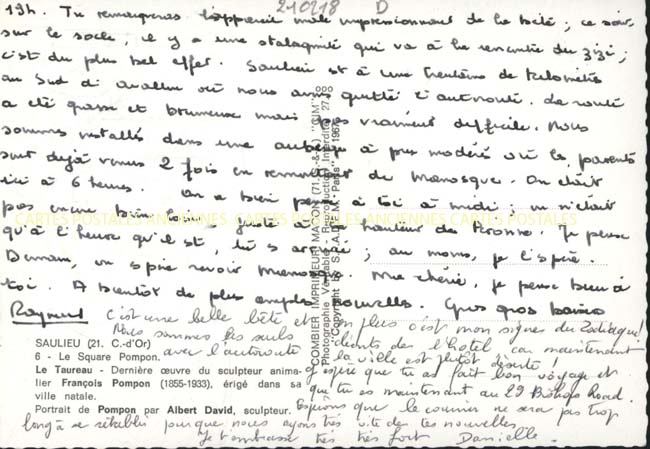 210218 D
19h. Tu remarqueras l'appareil mâle impressionnant de la bête ; ce soir,
sur le socle, il y a une stalagmite qui va à la rencontre du zizi ;
c'est du plus bel effet. Saulieu est à une trentaine de kilomètres
au Sud d'Avallon où nous avons quitté l'autoroute. La route
a été grasse et brumeuse mais pas vraiment difficile. Nous
sommes installés dans une auberge à prix modéré où les parents
sont déjà venus 2 fois en remontant de Manosque. On était
ici à 6 heures. On a bien pensé à toi à midi ; on n'était
pas encore bien loin, juste à hauteur de Péronne. Je pense
qu'à l'heure qu'il est, tu es arrivée ; au moins, je l'espère.
Demain, on espère revoir Manosque. Ma chérie, je pense bien à
toi. A bientôt de plus amples nouvelles. Gros gros baisers
Raymond
CARTES POSTALES ANCIENNES CARTES POSTALES ANCIENNES CARTES POSTALES
C'est une belle bête et en plus c'est mon signe du Zodiaque!
Nous sommes les seuls clients de l'hôtel car maintenant
avec l'autoroute la ville est plutôt déserte!
J'espère que tu as fait bon voyage et
que tu es maintenant au 29 Bishops Road.
Espérons que le courrier ne sera pas trop
long à se rétablir pour que nous ayons très vite de tes nouvelles.
Je t'embrasse très très fort Danielle.
SAULIEU (21. C.-d'Or)
6 - Le Square Pompon.
Le Taureau - Dernière œuvre du sculpteur anima-
lier François Pompon (1855-1933), érigé dans sa
ville natale.
Portrait de Pompon par Albert David, sculpteur.
COMBIER IMPRIMEUR MACON (71. S.-&-L.) "CIM"
Photographie Véritable - Reproduction Interdite